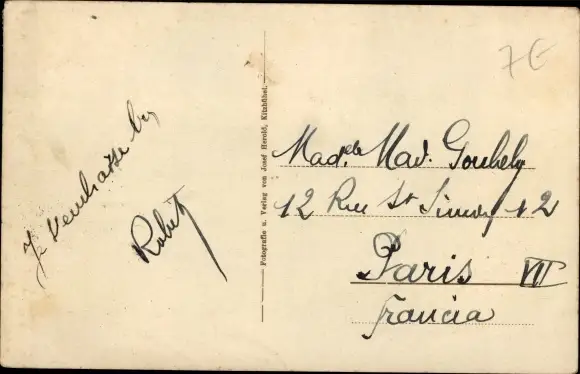 7 E
J. Vemhasse by
Robitz
Fotografie u. Verlag von Josef Herold, Kitzbühel.
Madelle Mad. Gouhely
12 Rue St Simon 12
Paris VII
Francia